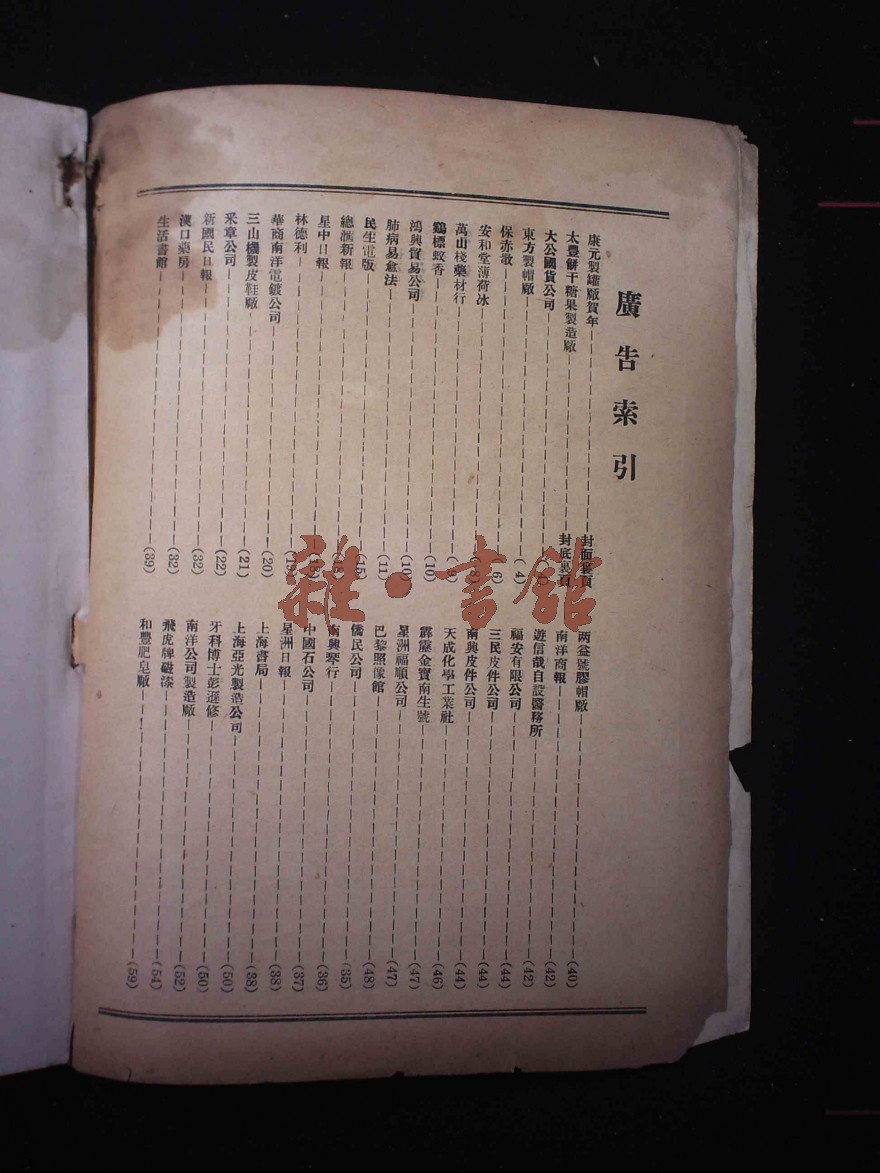 廣告索引
康元製罐廠賀年——封面裏頁
太豐餅干糖果製造廠——封底裏頁
大公國貨公司
東方製帽廠——(4)
保赤散——(6)
安和堂薄荷冰
萬山棧藥材行——(9)
鷄標蚊香——(10)
鴻興貿易公司——(10)
肺病易愈法——(11)
民生電版——(15)
總滙新報
星中日報
林德利
華商南洋電鍍公司——(20)
三山機製皮鞋廠——(21)
釆章公司——(22)
新國民日報——(32)
漢口藥房——(32)
生活書館——(39)
两益號膠帽廠——(40)
南洋商報——(42)
遊信哉自設醫務所——(42)
福安有限公司——(44)
三民皮件公司——(44)
南興皮件公司——(44)
天成化學工業社——(46)
霹靂金寶南生號——(47)
星洲福順公司——(47)
巴黎照像館——(48)
僑民公司——(35)
南興琴行——(36)
中國石公司——(37)
星洲日報——(38)
上海書局——(38)
上海亞光製造公司——(50)
牙科博士彭遲修——(50)
南洋公司製造廠——(52)
飛虎牌磁漆——(54)
和豐肥皂廠——(59)
雜·書館